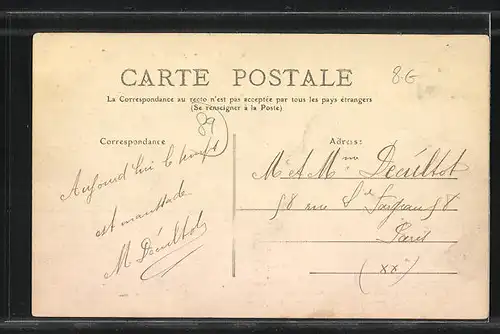 8-G
CARTE POSTALE
La Correspondance au recto n'est pas acceptée par tous les pays étrangers
(Se renseigner à la Poste)
89
Correspondance
Adresse:
Aujourd'hui le temps
est maussade
M Decultot
M. et Mme Decultot
58 rue St Fargeau 58
Paris
(XX)